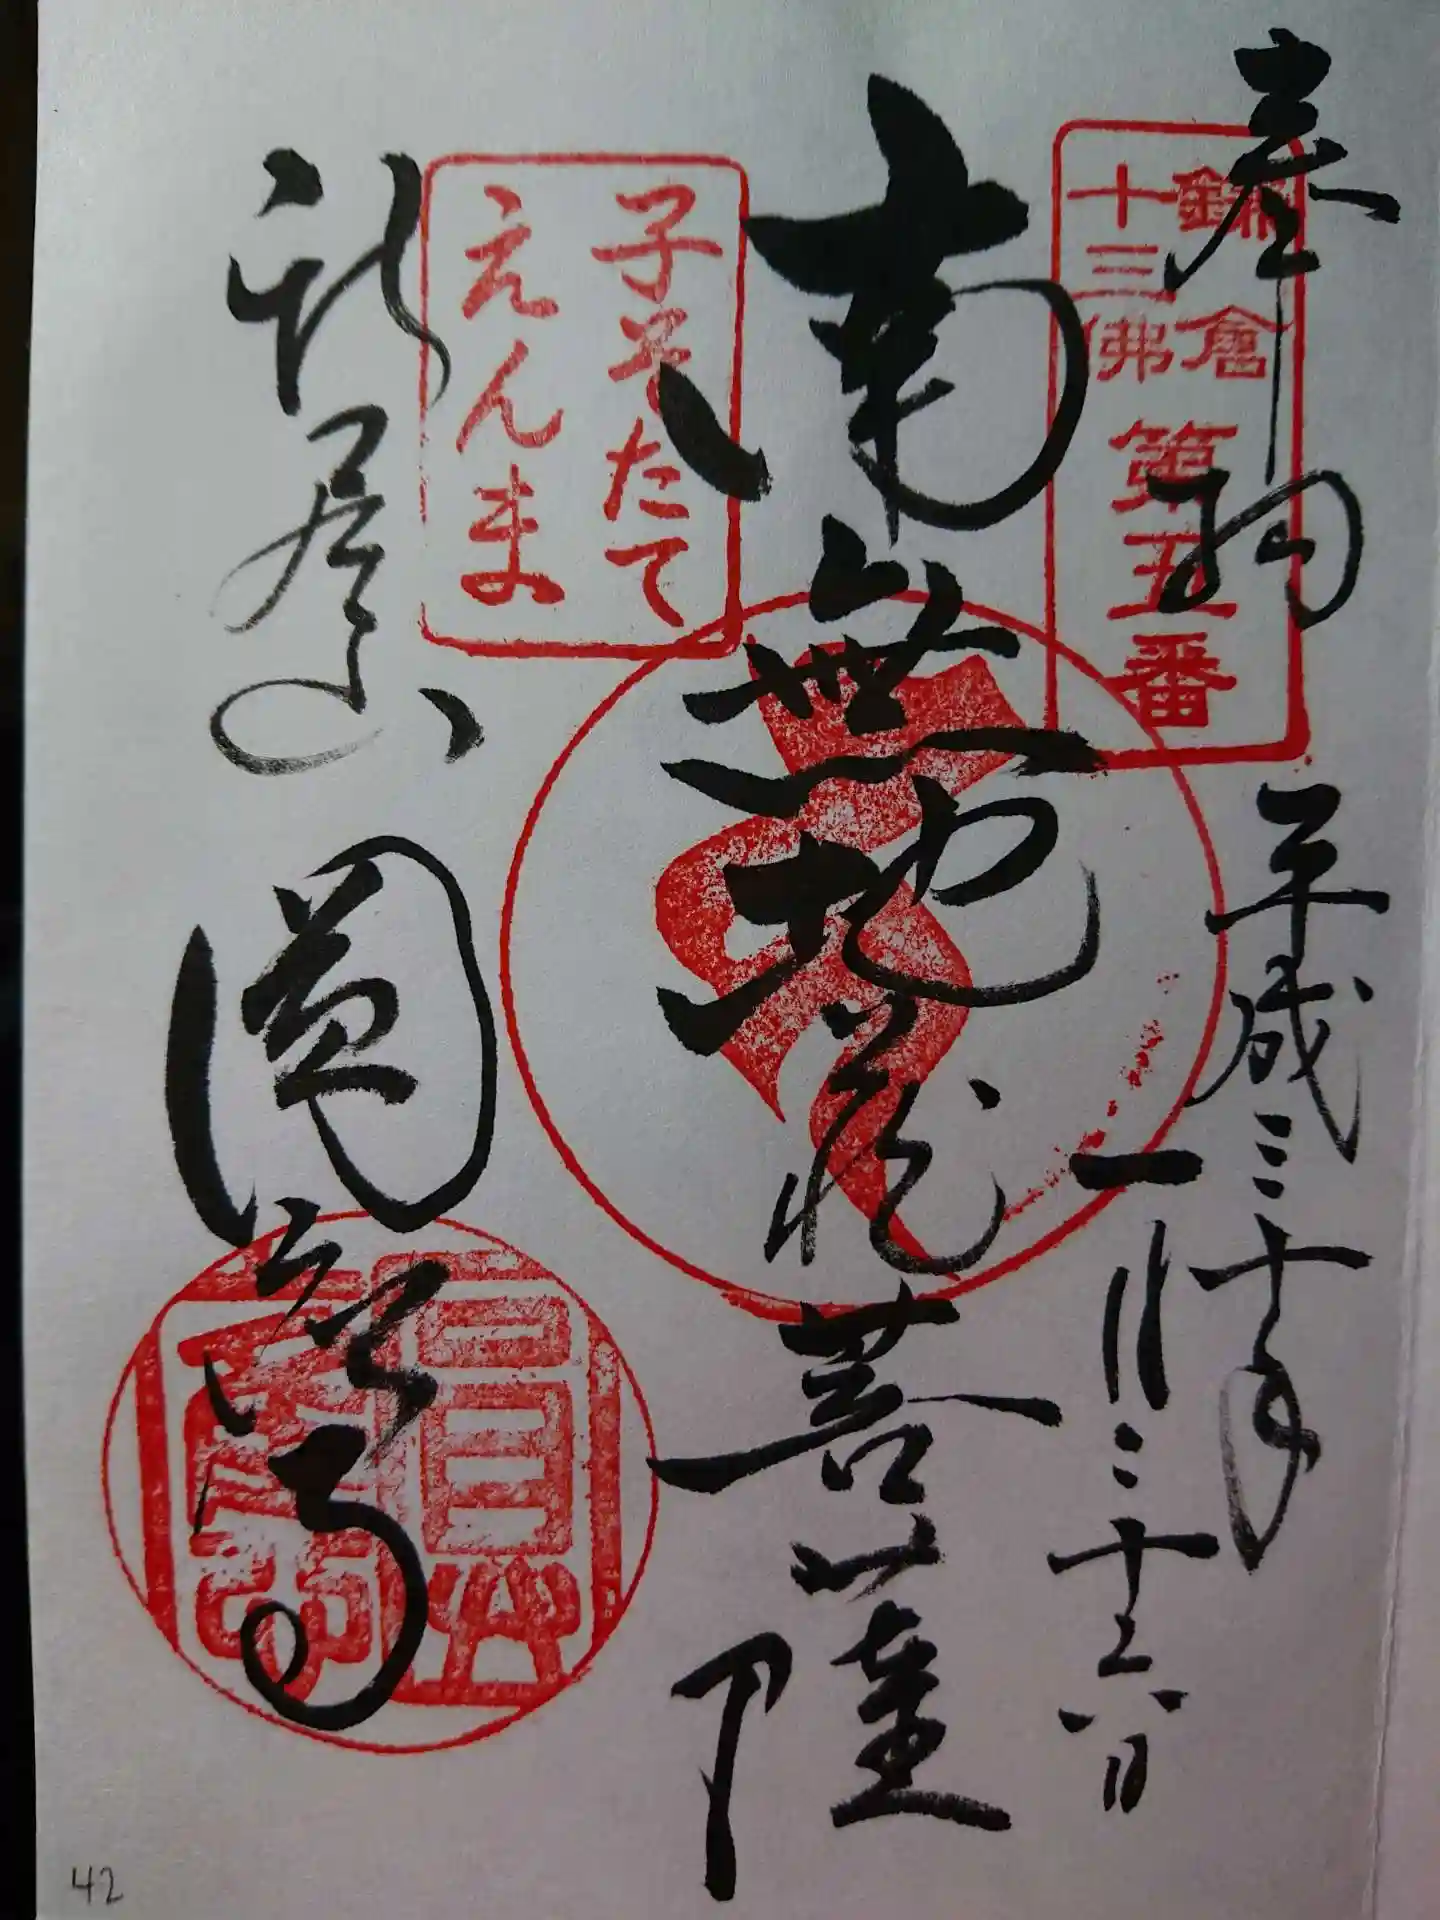 奉拝
鎌倉
十三佛
第五番
平成三十年
一月二十六日
南無地蔵菩薩
子そだて
えんま
新居山 圓應寺
42